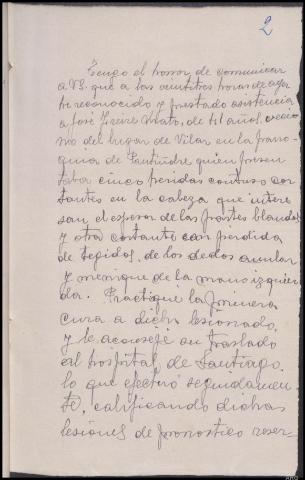 2
Tengo el honor de comunicar
a VS. que a las veintitres horas de ayer
he reconocido y prestado asistencia
a José Freire Mato, de 41 años, veci
no del lugar de Vilar en la parro-
quia de quien presen
taba cinco heridas contuso cor
tantes en la cabeza que intere
san el espesor de las partes blandas
y otra cortante con pérdida
de tegidos, de los dedos anular
y meñique de la mano izquier
da. Practiqué la primera
cura a dicho lesionado,
y le aconsejé su traslado
al hospital de Santiago,
lo que efectuó seguidamen
te, calificando dichas
lesiones de pronostico reser-